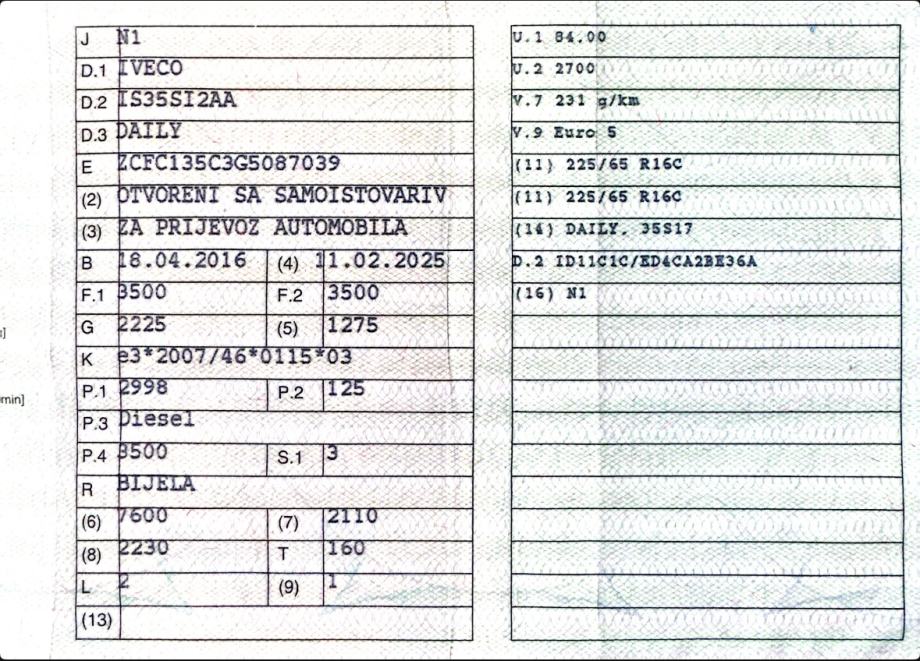 J N1
D.1 IVECO
D.2 IS35SI2AA
D.3 DAILY
E ZCFC135C3G5087039
(2) OTVORENI SA SAMOISTOVARIV
(3) ZA PRIJEVOZ AUTOMOBILA
B 18.04.2016 (4) 11.02.2025
F.1 3500 F.2 3500
G 2225 (5) 1275
K e3*2007/46*0115*03
P.1 2998 P.2 125
P.3 Diesel
P.4 3500 S.1 3
R BIJELA
(6) 7600 (7) 2110
(8) 2230 T 160
L 2 (9) 1
(13)
min]
U.1 84.00
U.2 2700
V.7 231 g/km
V.9 Euro 5
(11) 225/65 R16C
(11) 225/65 R16C
(14) DAILY. 35S17
D.2 ID11C1C/ED4CA2BE36A
(16) N1